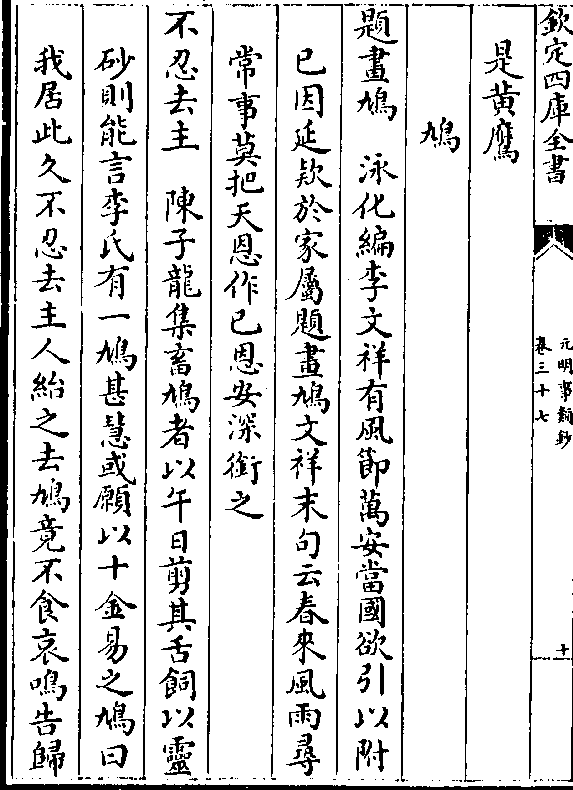 欽定四庫全書
元明事類鈔
卷三十七
十
是黃鷹
鳩
題畫鳩　泳化編李文祥有風節萬安當國欲引以附
已因延欵於家屬題畫鳩文祥末句云春來風雨尋
常事莫把天恩作已恩安深銜之
不忍去主　陳子龍集畜鳩者以午日剪其舌飼以靈
砂則能言李氏有一鳩甚慧或願以十金易之鳩曰
我居此久不忍去主人紿之去鳩竟不食哀鳴告歸